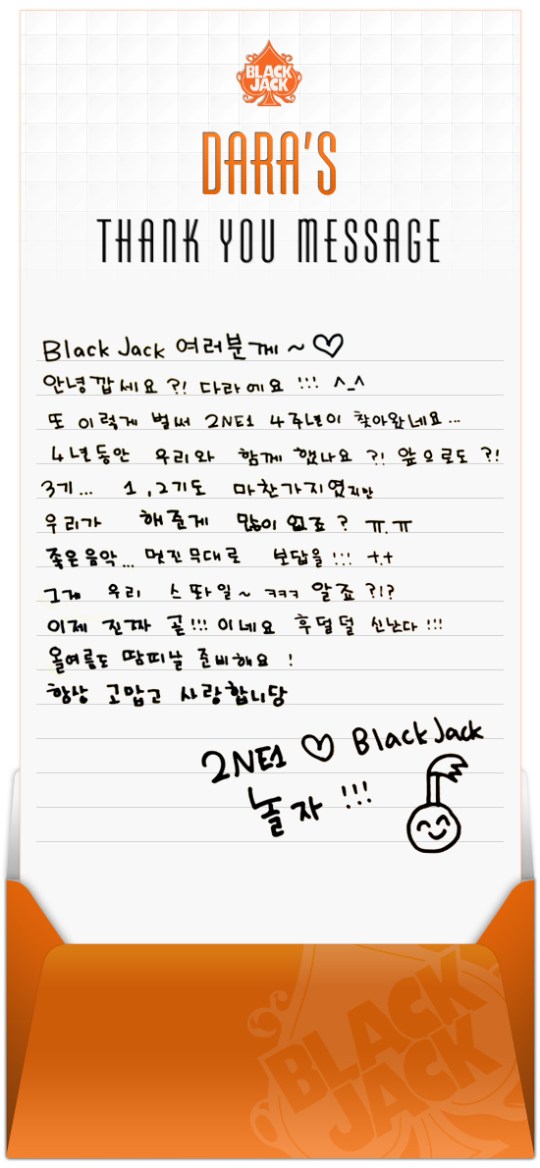 BLACK
JACK
DARA'S
THANK YOU MESSAGE
Black Jack 여러분께~♡
안녕깝세요?! 다라에요!!! ^_^
또 이렇게 벌써 2NE1 4주년이 찾아왔네요...
4년동안 우리와 함께 했나요?! 앞으로도?!
3기... 1,2기도 마찬가지였지만
우리가 해줄게 많이 없죠? ㅠ.ㅠ
좋은음악... 멋진무대로 보답을!!! ++
그게 우리 스똬일~ ㅋㅋㅋ 알죠?!?
이제 진짜 곧!!! 이네요 후덜덜 신난다!!!
올여름도 땀띠날 준비해요!
항상 고맙고 사랑합니당
2NE1 ♡ BlackJack
놀자!!!
BLACK
JACK